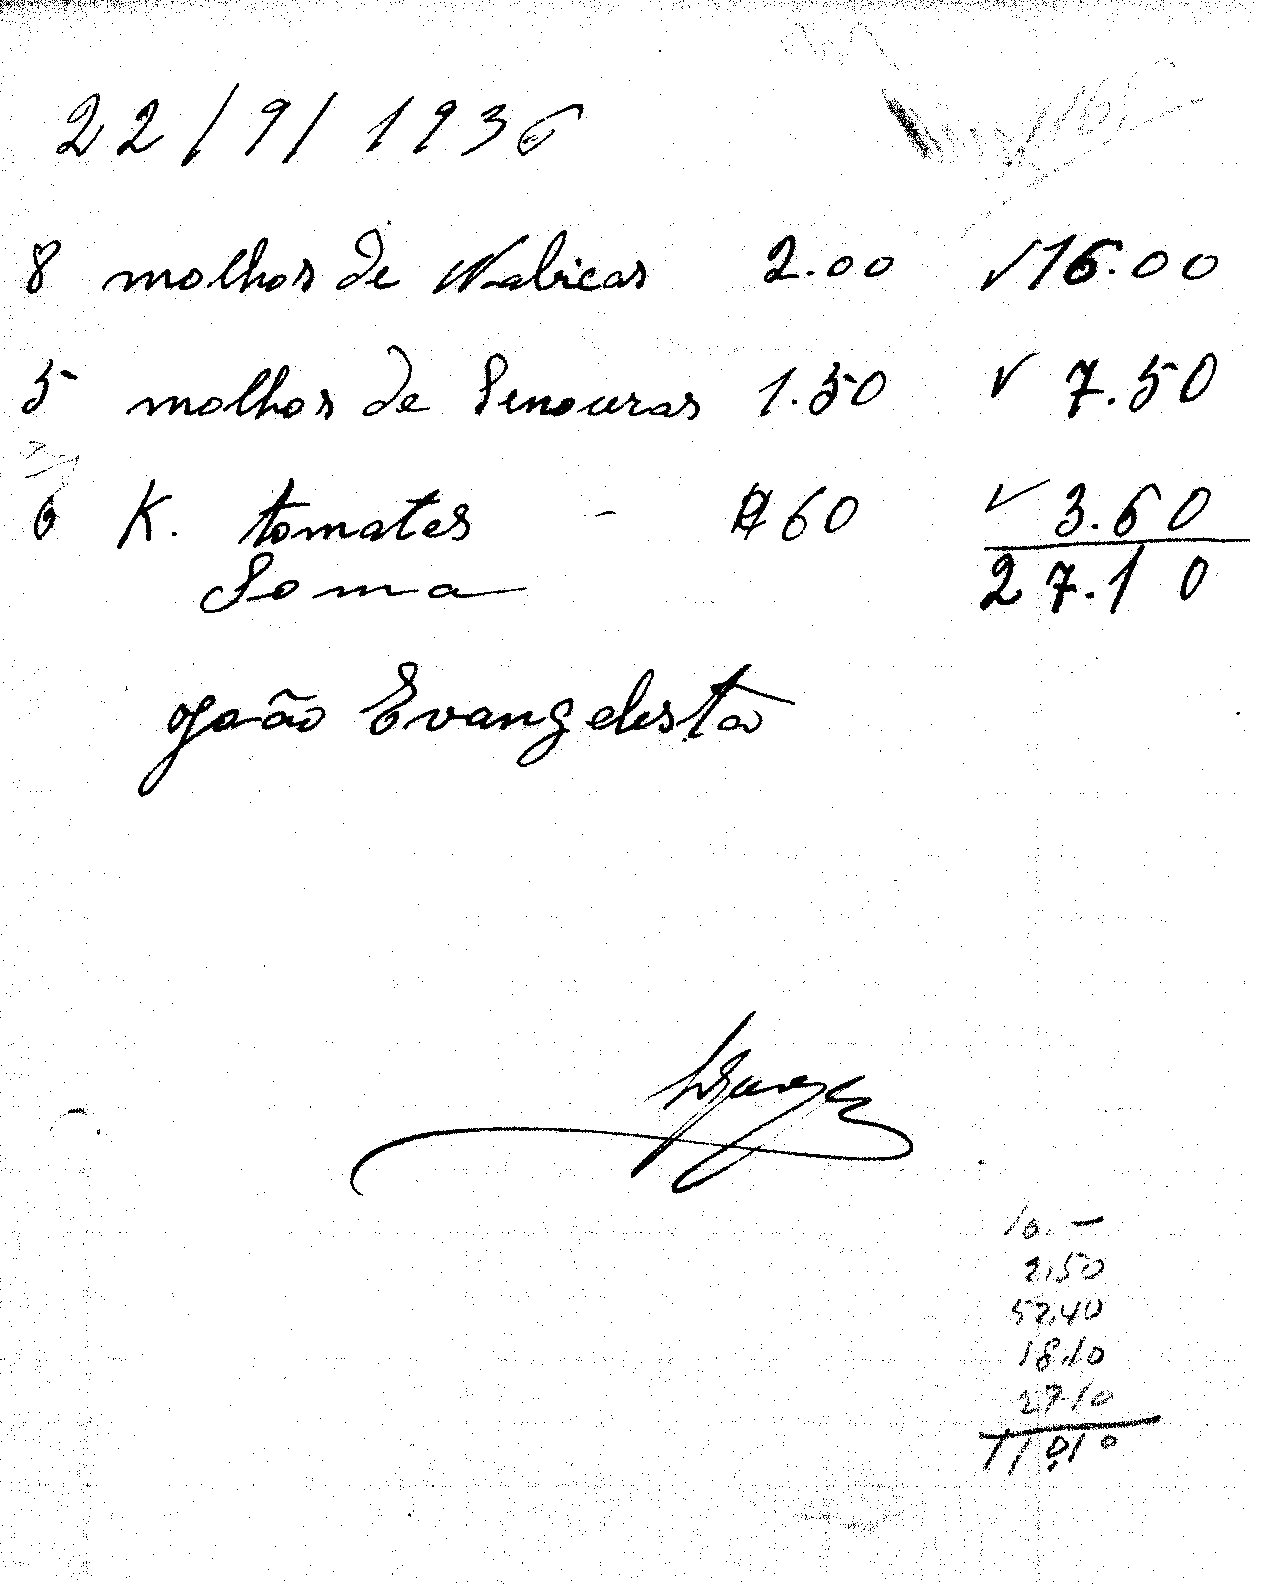 22/9/1936
8 molhos de Nabicas 2.00 √16.00
5 molhos de Senouras 1.50 √ 7.50
6 K. tomates - $60 √ 3.60
Soma 27.10
João Evangelista
10.—
2,50
52,40
18,10
27,10
110,10